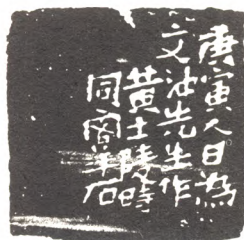 庚寅人日為
文油先生作
黃士陵時
同客羊石